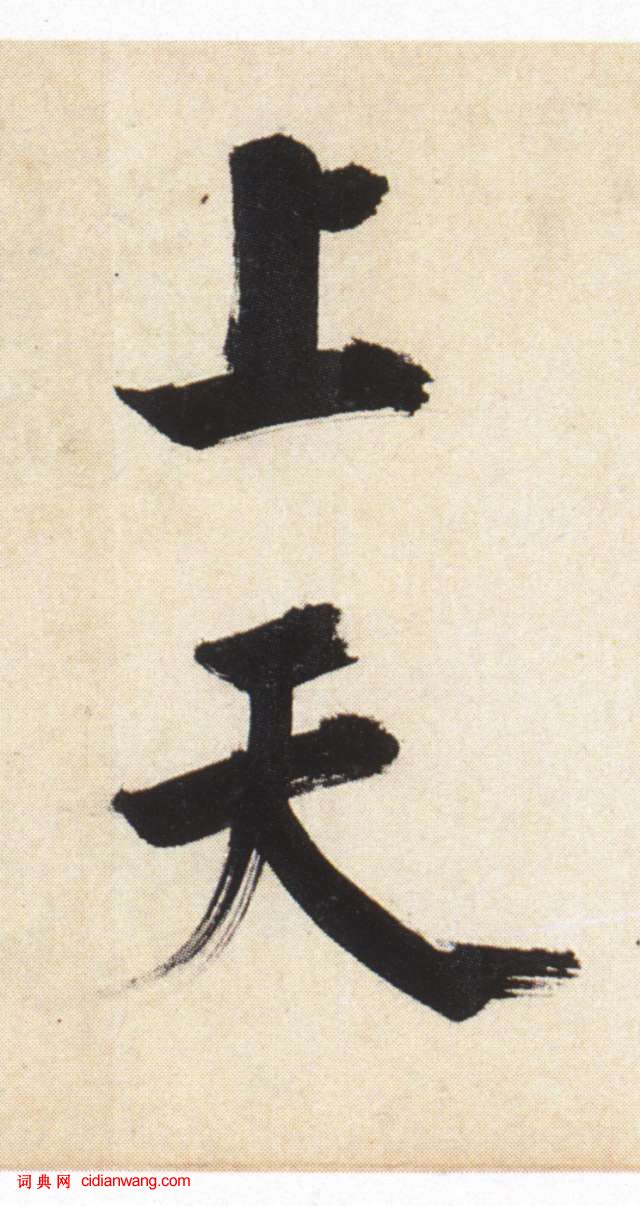 上天
词典网 cidianwang.com